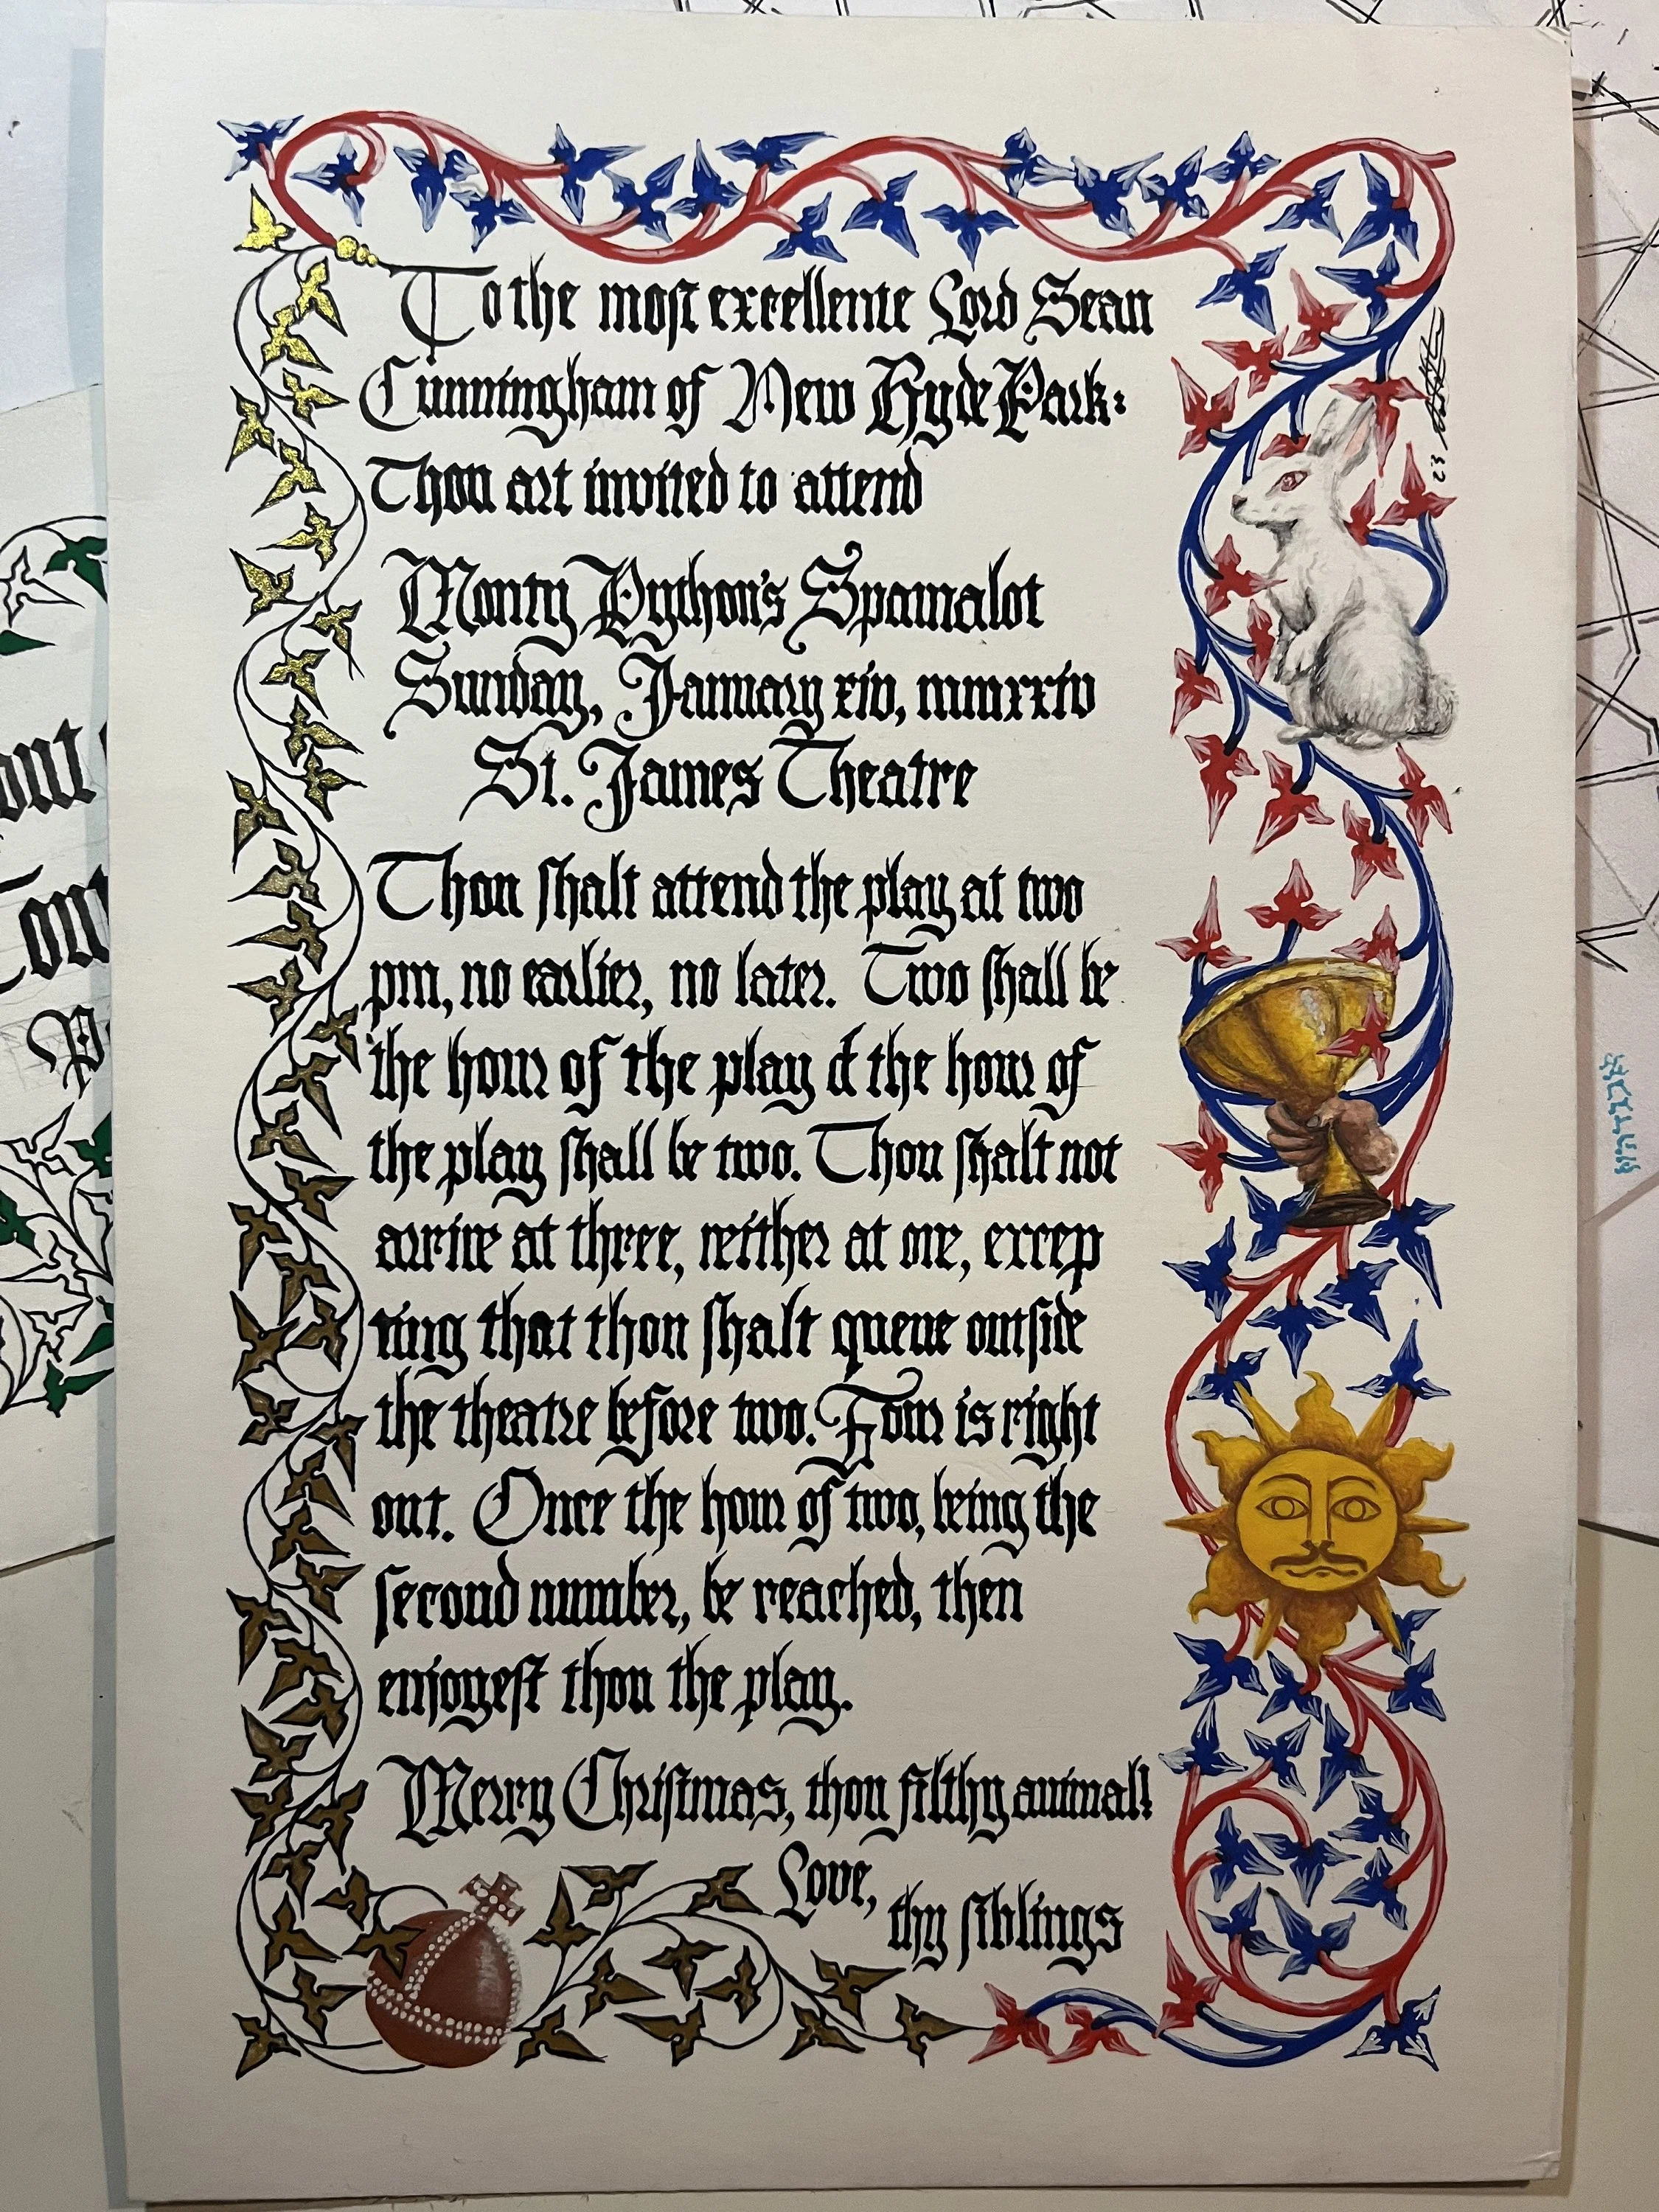 To the most excellente Lord Sean
Cunningham of New Hyde Park:
Thou art invited to attend
Monty Python's Spamalot
Sunday, January xiv, mmxxiv
St. James Theatre
Thou shalt attend the play at two
pm, no earlier, no later. Two shall be
the hour of the play & the hour of
the play shall be two. Thou shalt not
arrive at three, neither at one, excep
ting that thou shalt queue outside
the theatre before two. Four is right
out. Once the hour of two, being the
second number, be reached, then
enjoyest thou the play.
Merry Christmas, thou filthy animal!
Love,
thy siblings
23